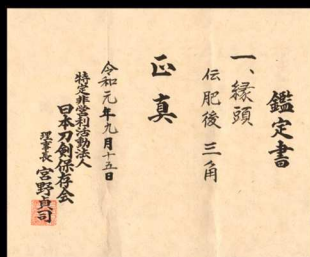 鑑定書
一、縁頭
伝肥後 三角
正真
令和元年九月十五日
特定非営利活動法人
日本刀剣保存会
理事長 宮野貞司